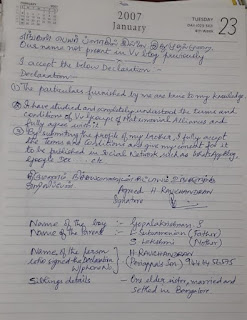 2007
January
TUESDAY
23
Our name not present in Vs blog previously
I accept the below Declaration -
Declaration -
(1) The particulars furnished by me are true to my knowledge.
(2) I have studied and completely understood the terms and
conditions of Vs groups of Matrimonial Alliances and
fully agree with it
(3) By submitting the profile of my I fully accept
the Terms and Conditions and give my consent for it
to be published in Social Network such as whatsapp/blog,
Google etc
Agreed H Ravichandran
Signature
Name of the boy :- Gopalakrishnan S
Name of the Parent :- Subramanian (Father)
S Lakshmi (Mother)
Name of the person :- H RAVICHANDRAN
who signed the Declaration
w/phone no
Siblings details - One elder sister, married and
settled in Bangalore